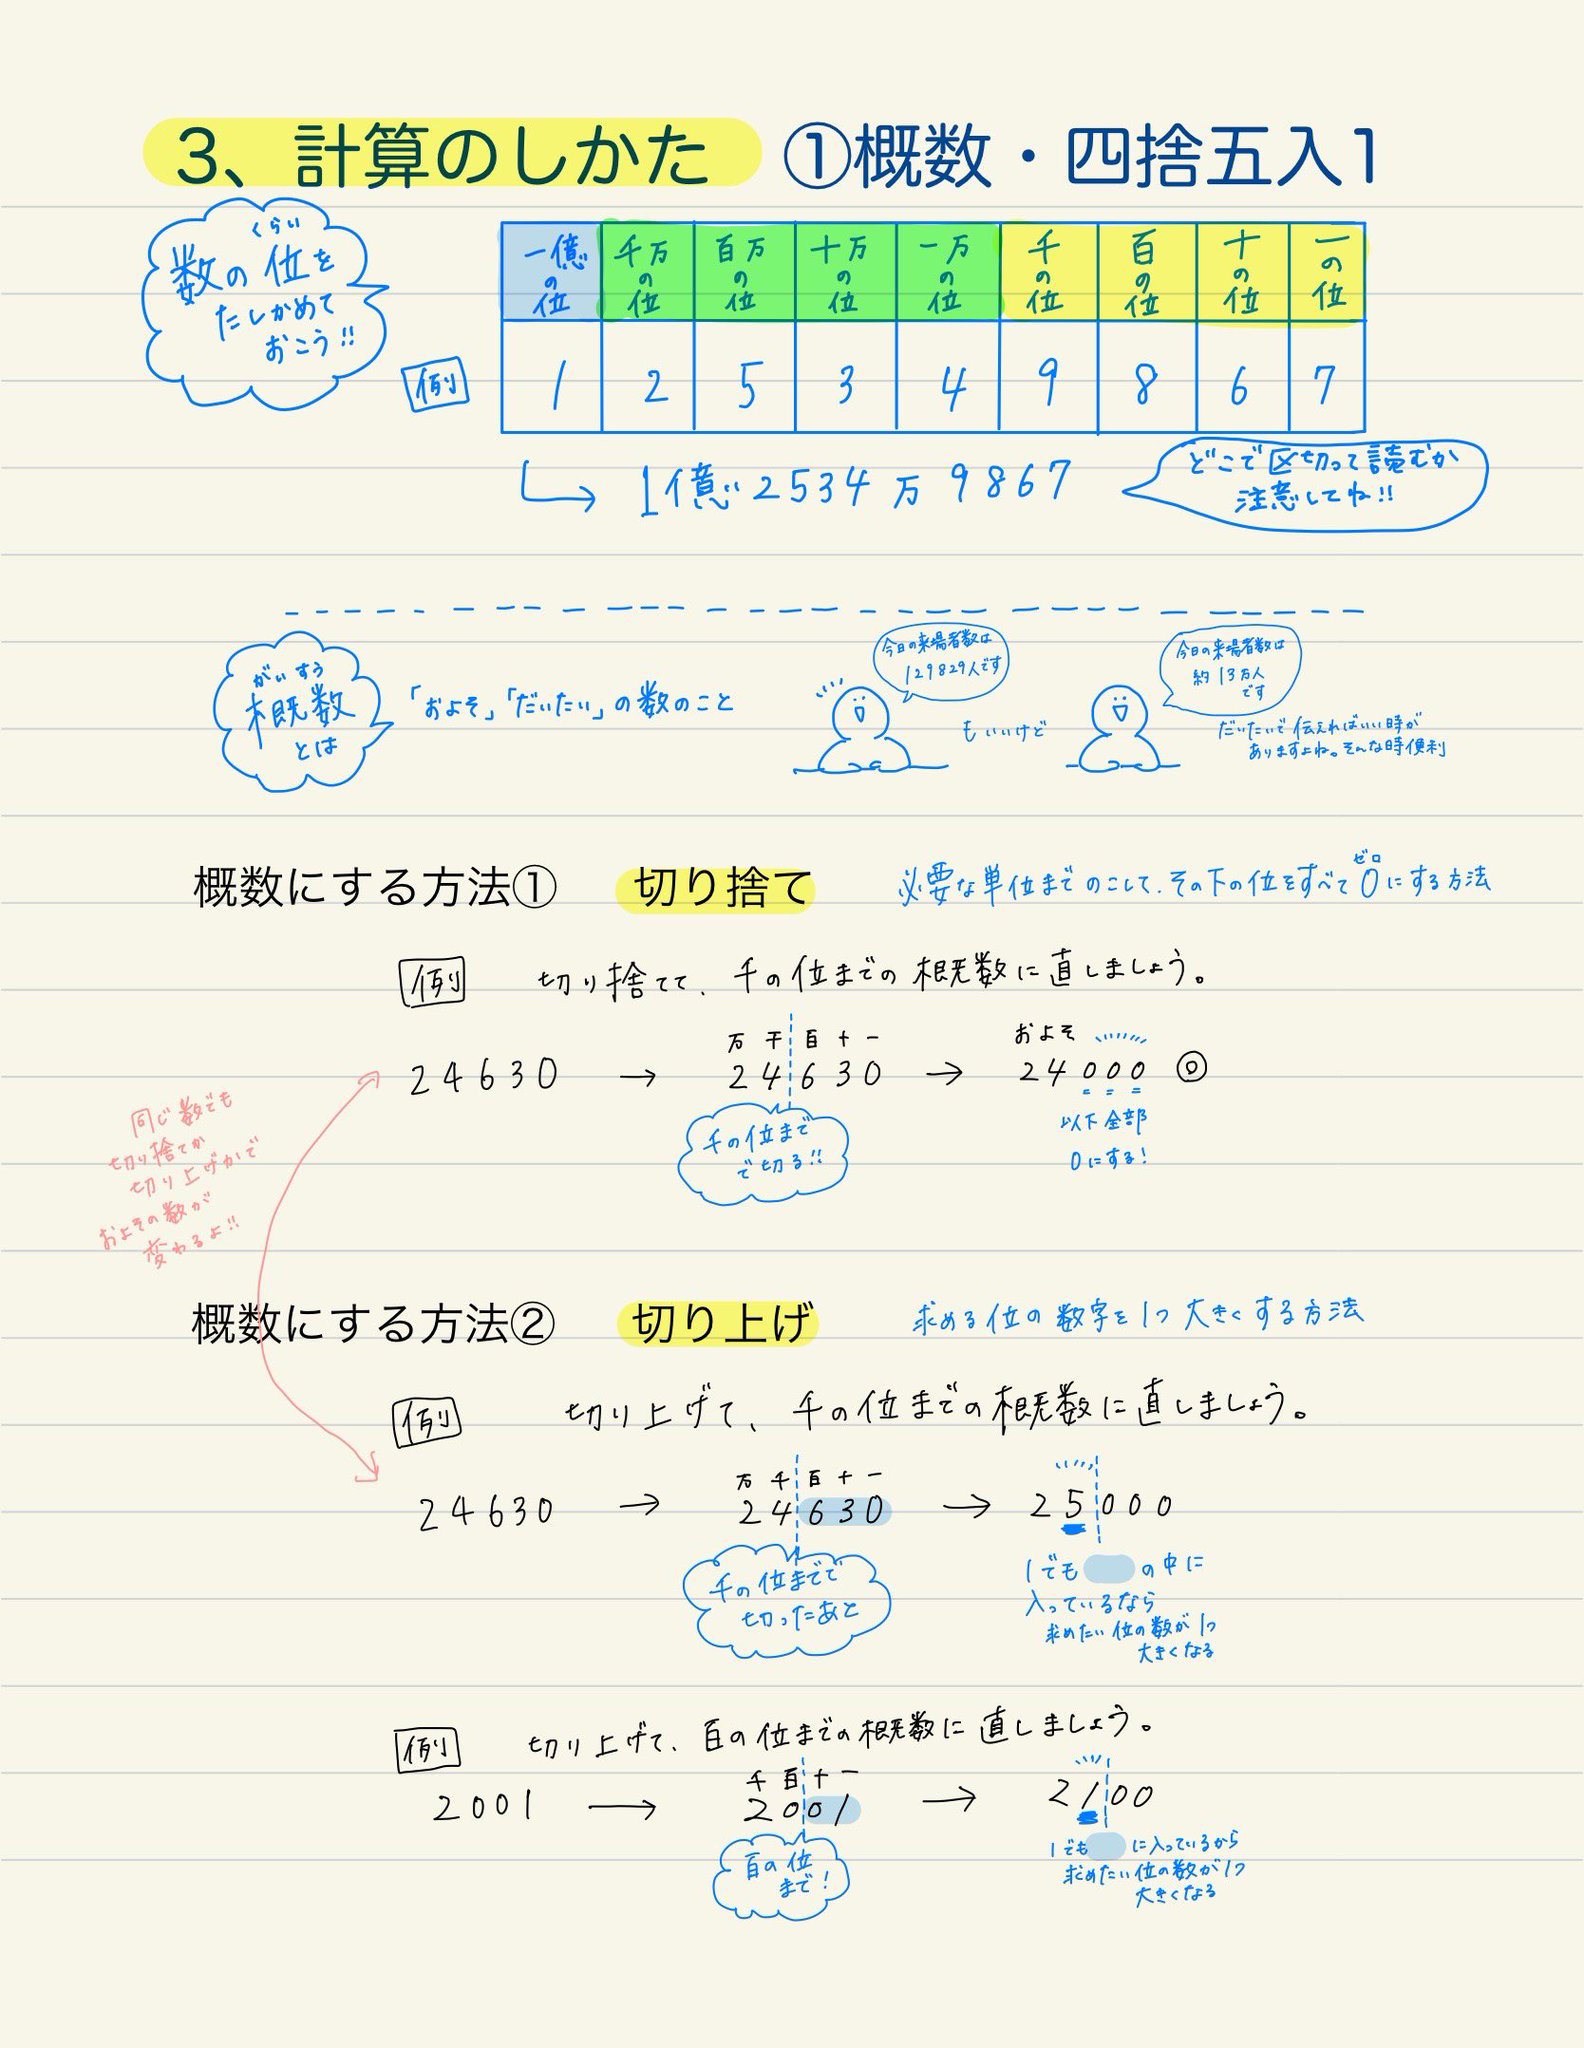 3、計算のしかた ①概数・四捨五入1
くらい
数の位を
たしかめて
おこう!!
一億の位 千万の位 百万の位 十万の位 一万の位 千の位 百の位 十の位 一の位
例 1 2 5 3 4 9 8 6 7
1億2534万9867
どこで区切って読むか
注意してね!!
がいすう
概数
とは
「およそ」「だいたい」の数のこと
今日の来場者数は
129829人です
もいいけど
今日の来場者数は
約13万人
です
だいたいで伝えればいい時が
ありますよね。そんな時便利
概数にする方法① 切り捨て
ゼロ
必要な単位までのこして、その下の位をすべて0にする方法
例 切り捨てて、千の位までの概数に直しましょう。
万千百十一 およそ
24630 → 24630 → 24000 ◎
千の位まで
で切る!!
以下全部
0にする!
同じ数でも
切り捨てか
切り上げかで
およその数が
変わるよ!!
概数にする方法② 切り上げ
求める位の数字を1つ大きくする方法
例 切り上げて、千の位までの概数に直しましょう。
万千百十一
24630 → 24630 → 25000
千の位までで
切ったあと
1でも の中に
入っているなら
求めたい位の数が1つ
大きくなる
例 切り上げて、百の位までの概数に直しましょう。
千百十一
2001 → 2001 → 2100
百の位
まで!
1でも に入っているから
求めたい位の数が1つ
大きくなる